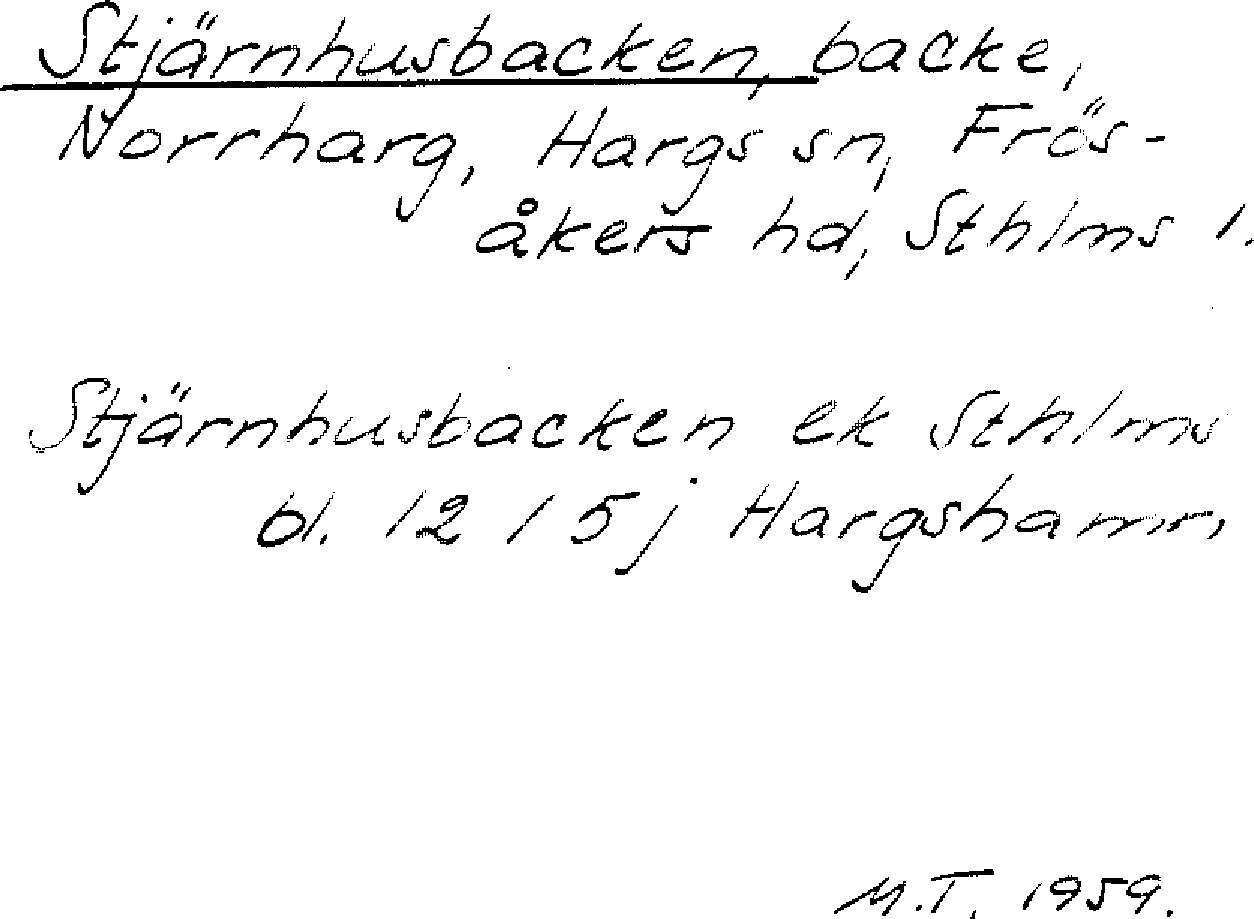 Stjärnhusbacken, backe,
Norrharg, Hargs sn, Frös-
åkers hd, Sthlms l.
Stjärnhusbacken ek Sthlms
bl. 12 I 5j Hargshamn
M.T. 1959.